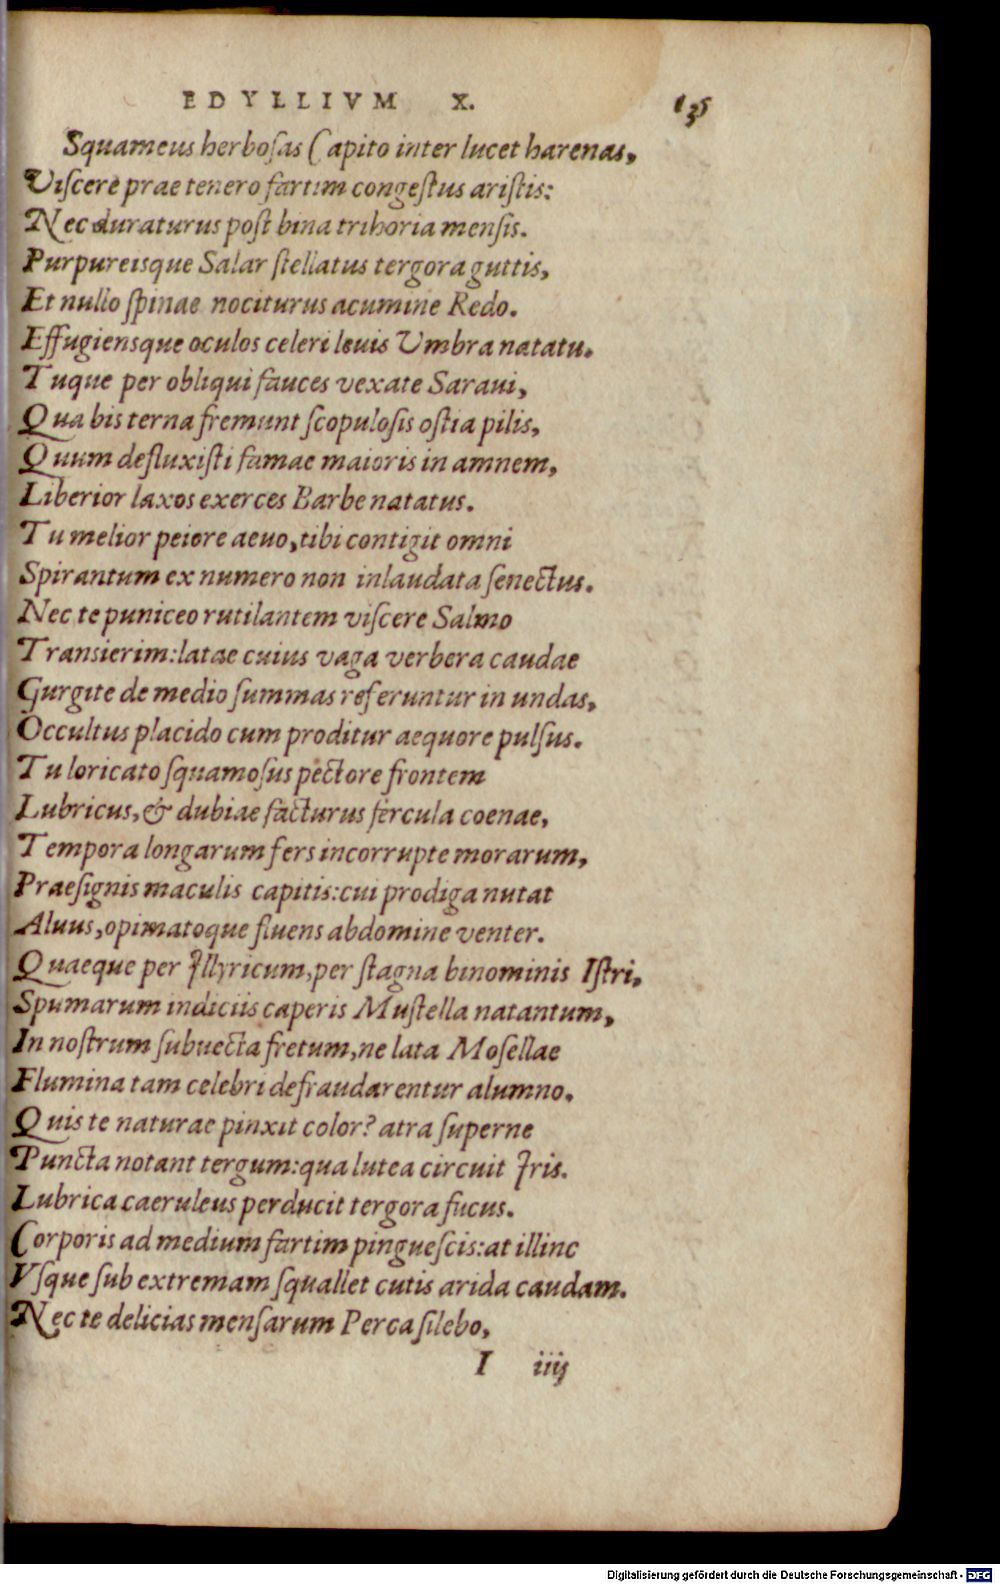 EDYLLIVM X. 135
Squameus herboſas Capito inter lucet harenas,
Viſcere prae tenero fartim congeſtus ariſtis:
Nec duraturus poſt bina trihoria menſis.
Purpureisque Salar ſtellatus tergora guttis,
Et nullo ſpinae nociturus acumine Redo.
Effugiensque oculos celeri leuis Vmbra natatu.
Tuque per obliqui fauces vexate Saraui,
Qua bis terna fremunt ſcopuloſis oſtia pilis,
Quum defluxiſti famae maioris in amnem,
Liberior laxos exerces Barbe natatus.
Tu melior peiore aeuo, tibi contigit omni
Spirantum ex numero non inlaudata ſenectus.
Nec te puniceo rutilantem viſcere Salmo
Transierim: latae cuius vaga verbera caudae
Gurgite de medio ſummas referuntur in undas,
Occultus placido cum proditur aequore pulſus.
Tu loricato ſquamoſus pectore frontem
Lubricus, & dubiae facturus fercula coenae,
Tempora longarum fers incorrupte morarum,
Praeſignis maculis capitis: cui prodiga nutat
Aluus, opimatoque fluens abdomine venter.
Quaeque per Illyricum, per ſtagna binominis Iſtri,
Spumarum indiciis caperis Muſtella natantum,
In noſtrum ſubuecta fretum, ne lata Moſellae
Flumina tam celebri defraudarentur alumno.
Quis te naturae pinxit color? atra ſuperne
Puncta notant tergum: qua lutea circuit Iris.
Lubrica caeruleus perducit tergora fucus.
Corporis ad medium fartim pingueſcis: at illinc
Vſque ſub extremam ſquallet cutis arida caudam.
Nec te delicias menſarum Perca ſilebo,
I iiij
Digitalisierung gefördert durch die Deutsche Forschungsgemeinschaft - DFG